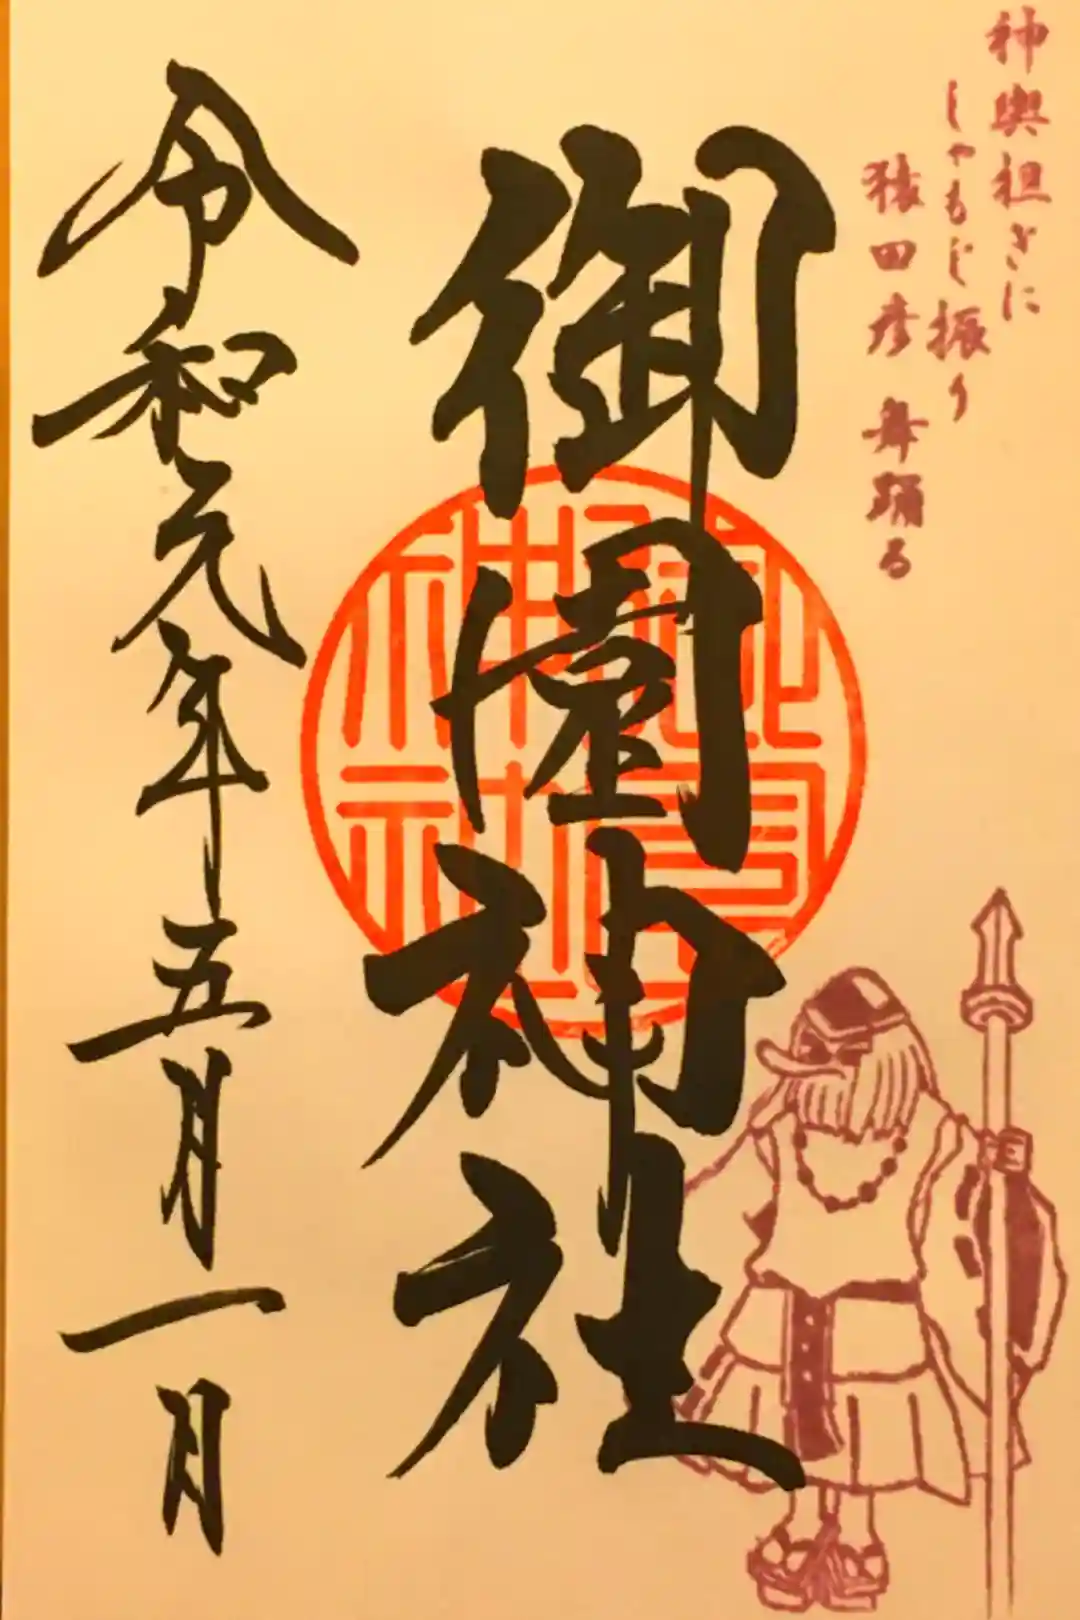 神輿担ぎに
しゃもじ振り
猿田彦 舞踊る
御園神社
令和元年五月一日